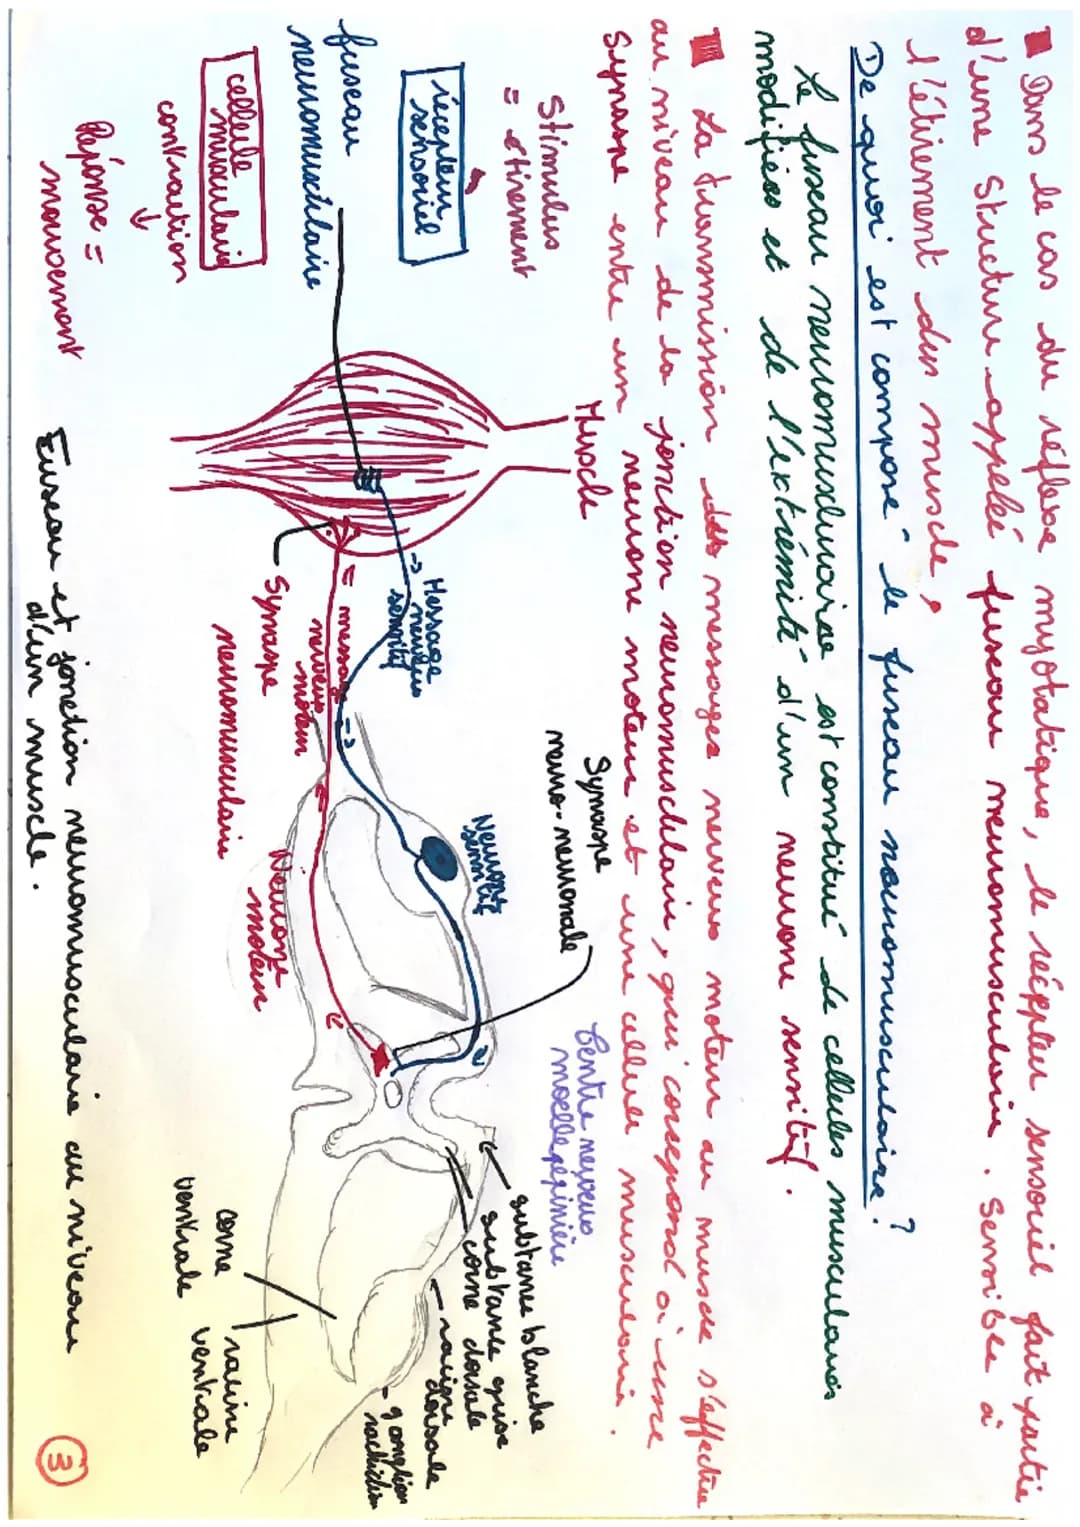 Dans le cas du réflexe myotatique, le réçpteur sensoriel fait partie
d'une Structure appelée fuseau neuromusculaire. Sensible à
l'étirement des muscle,
De quoi est composé le fuseau neuromusculaire ?
Le fuseau neuromusculuaire est constitué de cellules musculaires
modifiées et de l'extrémité d'un neurone sensitif.
La transmission des messages nerveus moteur au muscle s'effectue
au niveau de la jonction neuromusclulaire, qui correspond à une
Synapse entre un neurone moteur et une cellule musculaire.
Stimulus
= étirement
récepteur
sensoriel
fuseau
neuromusculaire
cellule
musculaire
contraction
Réponse =
mouvement
Muscle
Message
nerveux
sensitif
message
nerveux
moteur
Synapse
neuromusculaire
Synapse
neuro-neuronale
Neurone
sensitif
Neurone
moteur
Centre nerveus
moelle épinière
substance blanche
substance grise
corne dorsale
racine
dorsale
ganglion
rachidien
corne
ventrale
racine
ventrale
Fuseau et jonction neuromusculaire au niveau
d'un muscle.
3